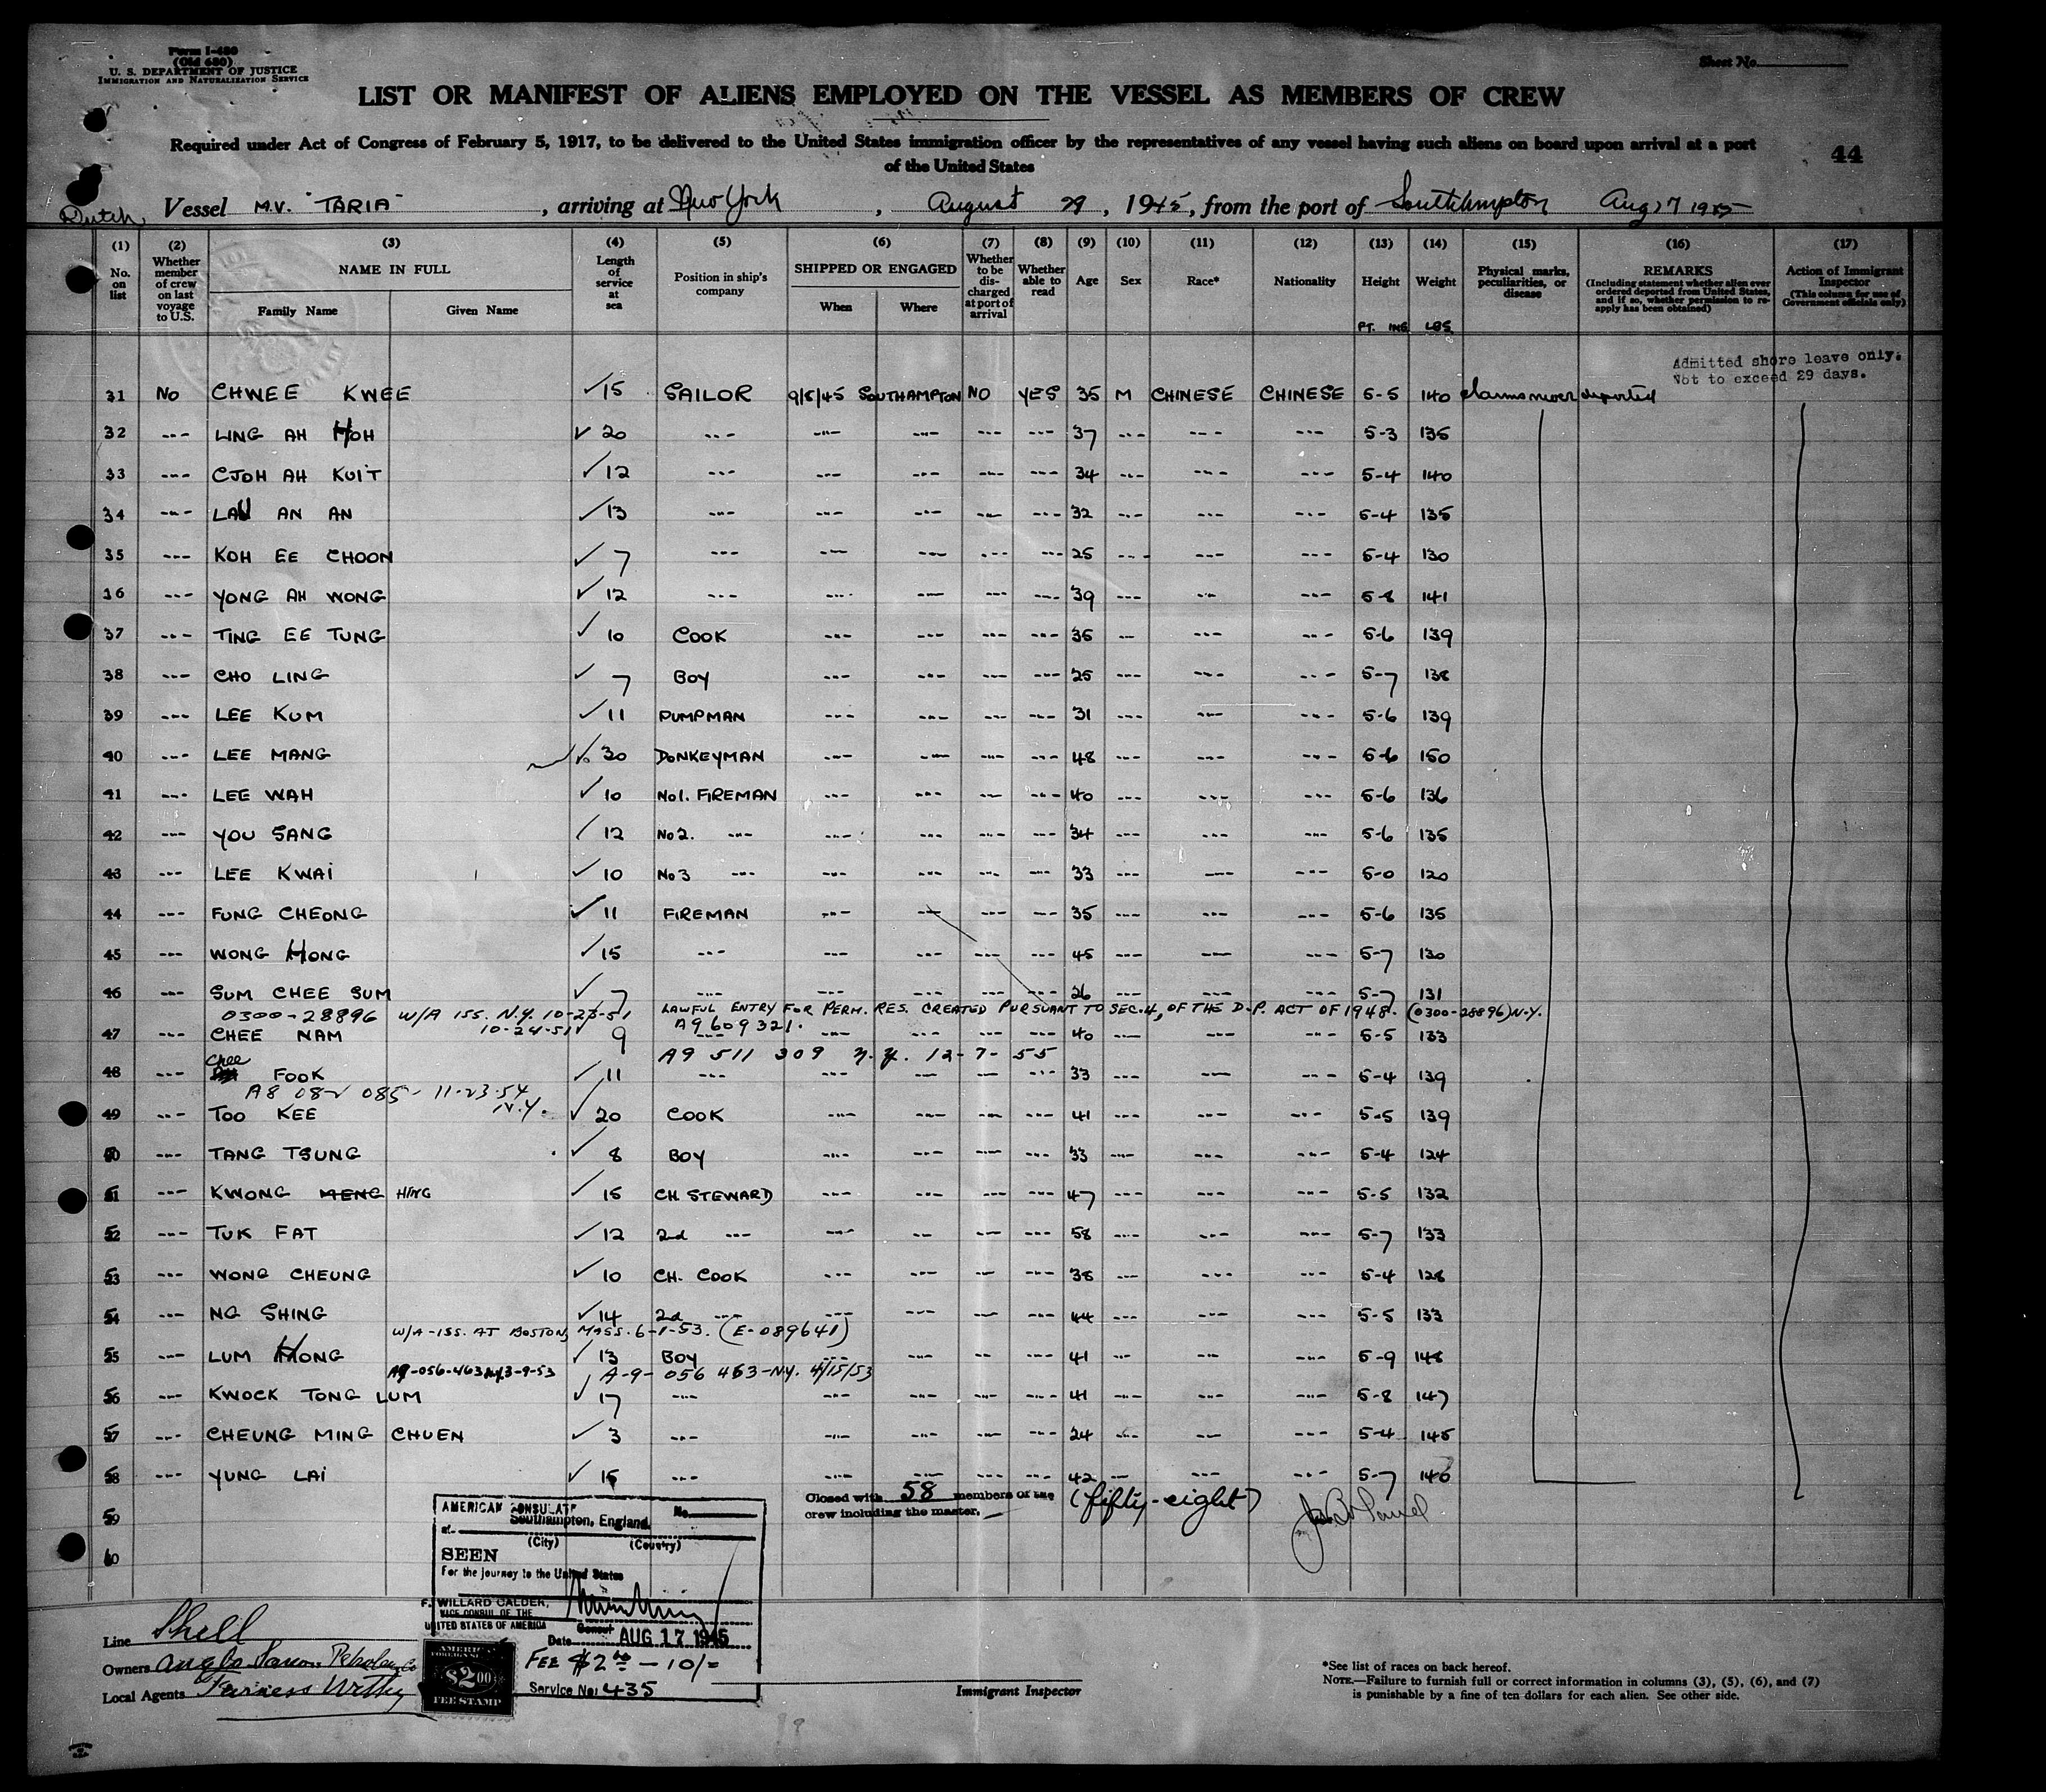 Form I-480
(Old 680)
U. S. DEPARTMENT OF JUSTICE
IMMIGRATION AND NATURALIZATION SERVICE
Sheet No.
LIST OR MANIFEST OF ALIENS EMPLOYED ON THE VESSEL AS MEMBERS OF CREW
Required under Act of Congress of February 5, 1917, to be delivered to the United States immigration officer by the representatives of any vessel having such aliens on board upon arrival at a port
of the United States
44
Dutch Vessel M.V. "TARIA", arriving at New York, August 29, 1945, from the port of Southampton Aug 17 1945
(1) (2) (3) (4) (5) (6) (7) (8) (9) (10) (11) (12) (13) (14) (15) (16) (17)
No. on list
Whether member of crew on last voyage to U.S.
NAME IN FULL
Family Name Given Name
Length of service at sea
Position in ship's company
SHIPPED OR ENGAGED
When Where
Whether to be discharged at port of arrival
Whether able to read
Age
Sex
Race*
Nationality
Height
FT. INS
Weight
LBS.
Physical marks, peculiarities, or disease
REMARKS
(Including statement whether alien ever ordered deported from United States, and if so, whether permission to re-apply has been obtained)
Action of Immigrant Inspector
(This column for use of Government officials only)
Admitted shore leave only.
Not to exceed 29 days.
31 No CHWEE KWEE ✓15 SAILOR 9/5/45 SOUTHAMPTON NO YES 35 M CHINESE CHINESE 5-5 140 claims never deported
32 --- LING AH HOH ✓ 20 --- --- --- --- --- 37 --- --- --- 5-3 135
33 --- CJOH AH KUIT ✓ 12 --- --- --- --- --- 34 --- --- --- 5-4 140
34 --- LAU AN AN ✓ 13 --- --- --- --- --- 32 --- --- --- 5-4 135
35 --- KOH EE CHOON ✓ 7 --- --- --- --- --- 25 --- --- --- 5-4 130
36 --- YONG AH WONG ✓ 12 --- --- --- --- --- 39 --- --- --- 5-8 141
37 --- TING EE TUNG ✓ 10 COOK --- --- --- --- 35 --- --- --- 5-6 139
38 --- CHO LING ✓ 7 BOY --- --- --- --- 25 --- --- --- 5-7 138
39 --- LEE KUM ✓ 11 PUMPMAN --- --- --- --- 31 --- --- --- 5-6 139
40 --- LEE MANG ✓ 30 DONKEYMAN --- --- --- --- 48 --- --- --- 5-6 150
41 --- LEE WAH ✓ 10 No1. FIREMAN --- --- --- --- 40 --- --- --- 5-6 136
42 --- YOU SANG ✓ 12 No 2. --- --- --- --- --- 34 --- --- --- 5-6 135
43 --- LEE KWAI ✓ 10 No 3 --- --- --- --- --- 33 --- --- --- 5-0 120
44 --- FUNG CHEONG ✓ 11 FIREMAN --- --- --- --- 35 --- --- --- 5-6 135
45 --- WONG HONG ✓ 15 --- --- --- --- --- 45 --- --- --- 5-7 130
46 --- SUM CHEE SUM ✓ 7 --- --- --- --- --- 26 --- --- --- 5-7 131
0300-28896 W/A ISS. N.Y. 10-23-51 LAWFUL ENTRY FOR PERM. RES. CREATED PURSUANT TO SEC. 4, OF THE D.P. ACT OF 1948. (0300-28896) N.Y.
10-24-51 A9609321.
47 --- CHEE NAM ✓ 9 --- --- --- --- --- 40 --- --- --- 5-5 133
A9 511 309 N.Y. 12-7-55
48 --- Chee FOOK ✓ 11 --- --- --- --- --- 33 --- --- --- 5-4 139
A8 082 085 - 11-23-54 N.Y.
49 --- TOO KEE ✓ 20 COOK --- --- --- --- 41 --- --- --- 5-5 139
50 --- TANG TSUNG ✓ 8 BOY --- --- --- --- 33 --- --- --- 5-4 124
51 --- KWONG MENG HING ✓ 15 CH. STEWARD --- --- --- --- 47 --- --- --- 5-5 132
52 --- TUK FAT ✓ 12 2nd --- --- --- --- --- 58 --- --- --- 5-7 133
53 --- WONG CHEUNG ✓ 10 CH. COOK --- --- --- --- 38 --- --- --- 5-4 128
54 --- NG SHING ✓ 14 2nd --- --- --- --- --- 44 --- --- --- 5-5 133
W/A-ISS. AT BOSTON, MASS. 6-1-53. (E-089641)
55 --- LUM HONG ✓ 13 BOY --- --- --- --- 41 --- --- --- 5-9 148
A9-056-463 N.Y. 3-9-53 A-9-056 463-NY. 4/15/53
56 --- KWOCK TONG LUM ✓ 17 --- --- --- --- --- 41 --- --- --- 5-8 147
57 --- CHEUNG MING CHUEN ✓ 3 --- --- --- --- --- 24 --- --- --- 5-4 145
58 --- YUNG LAI ✓ 15 --- --- --- --- --- 42 --- --- --- 5-7 146
59
60
Closed with 58 members of the (fifty-eight)
crew including the master.
AMERICAN CONSULATE No.
at Southampton, England.
(City) (Country)
SEEN
For the journey to the United States
F. WILLARD CALDER,
VICE CONSUL OF THE
UNITED STATES OF AMERICA
Consul
Date AUG 17 1945
FEE $2 00 - 10/=
Service No: 435
AMERICAN
FOREIGN SERVICE
$2.00
FEE STAMP
Line Shell
Owners Anglo Saxon Petroleum Co
Local Agents Furness Withy
Immigrant Inspector
*See list of races on back hereof.
NOTE.—Failure to furnish full or correct information in columns (3), (5), (6), and (7)
is punishable by a fine of ten dollars for each alien. See other side.